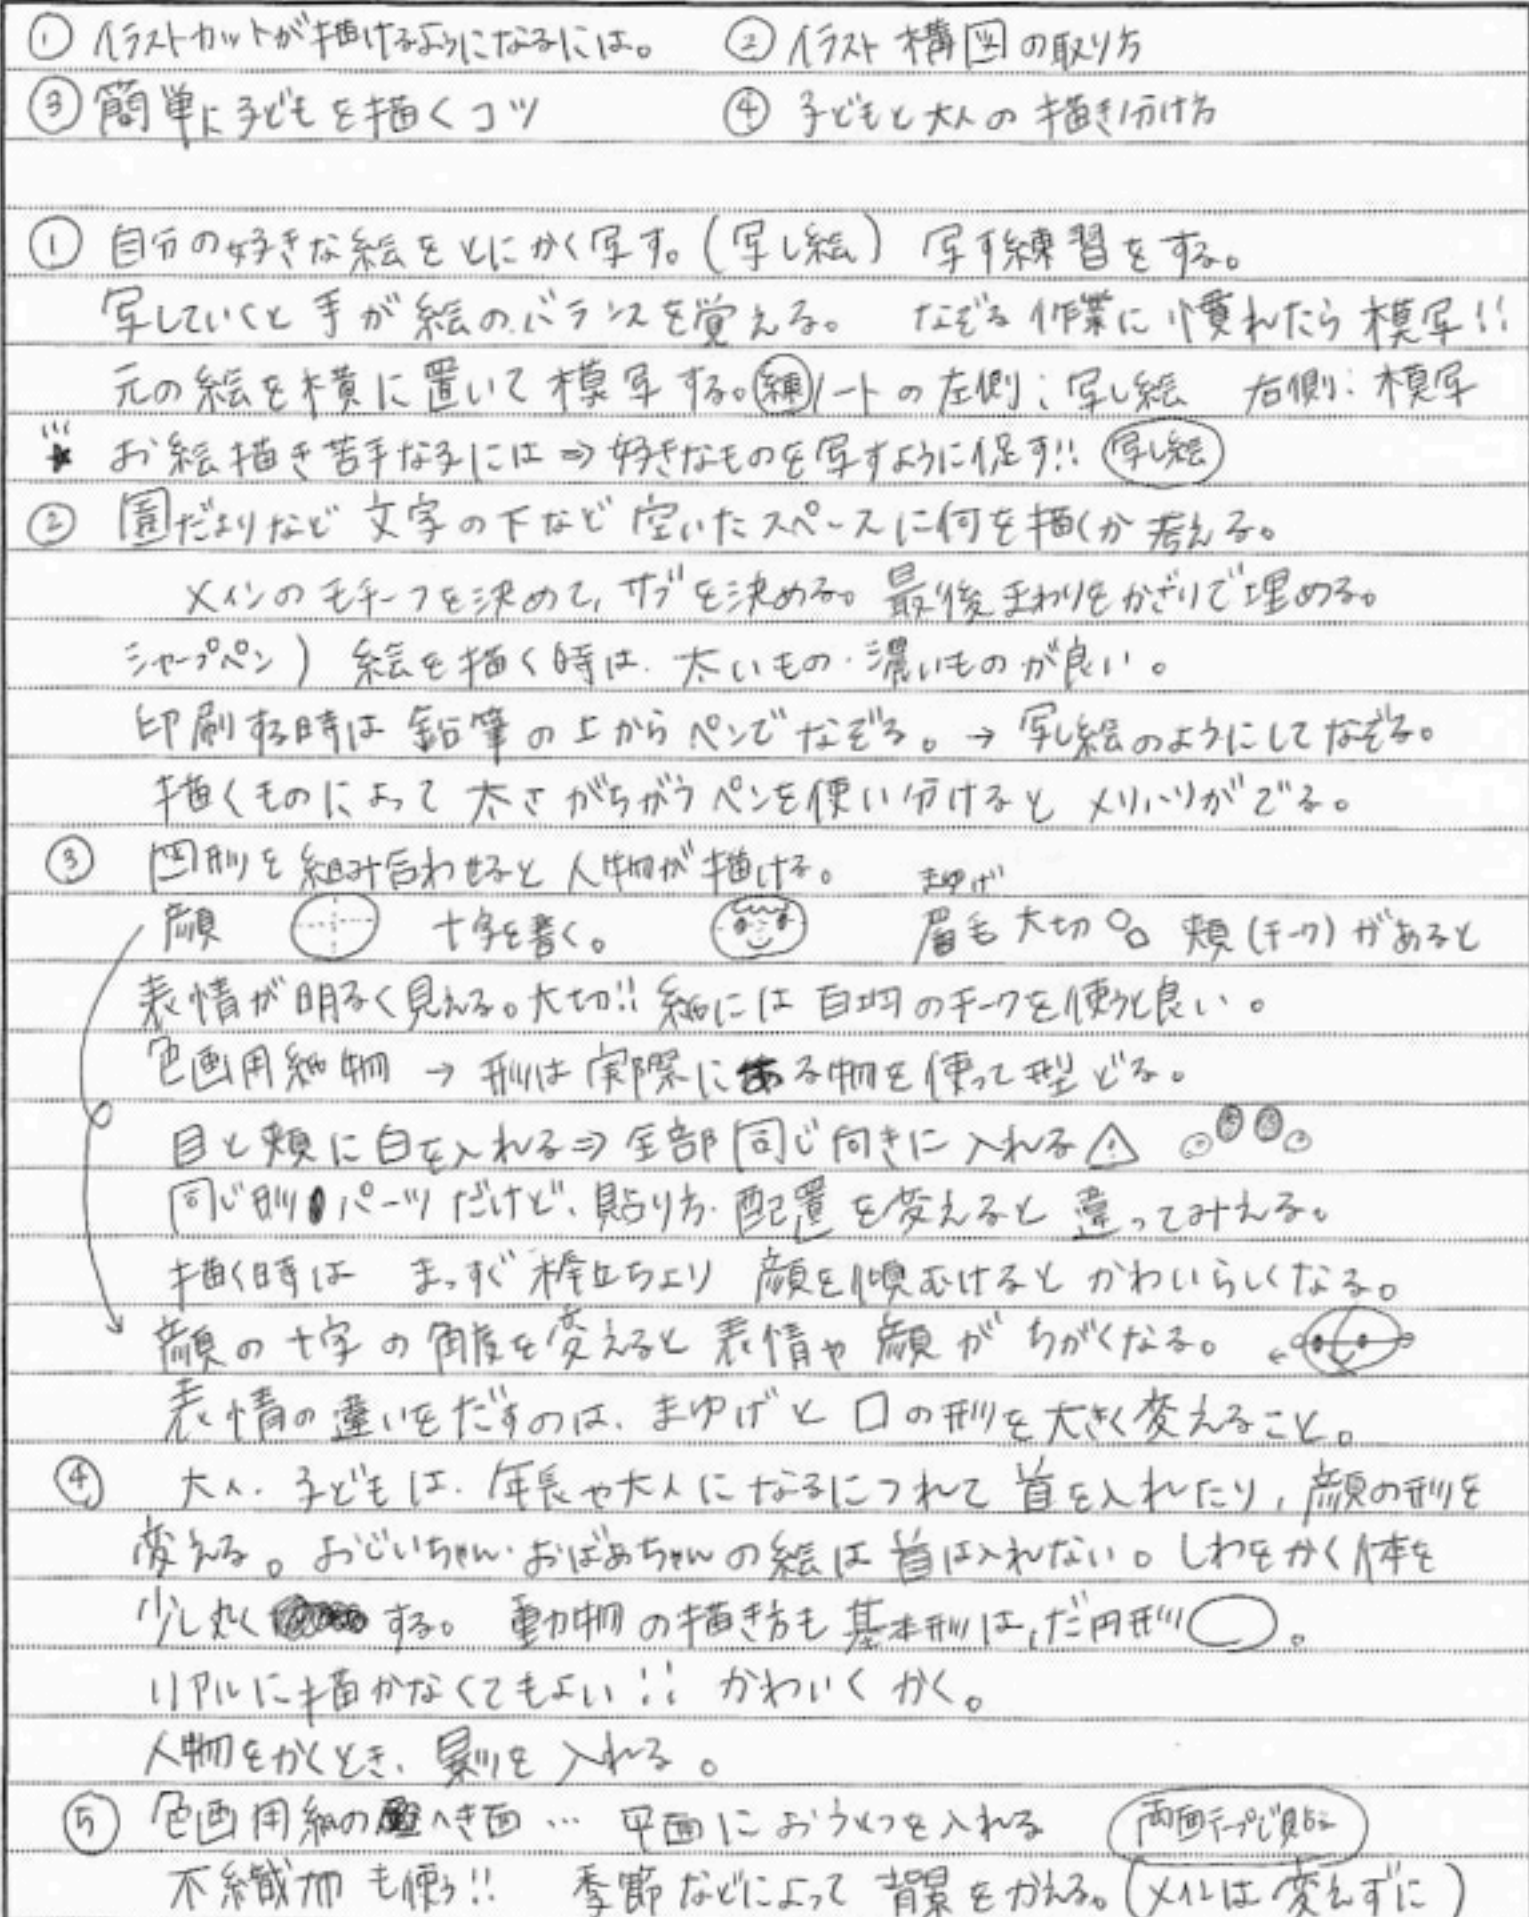 ① イラストカットが描けるようになるには。 ② イラスト構図の取り方
③ 簡単に子どもを描くコツ ④ 子どもと大人の描き分け方
① 自分の好きな絵をとにかく写す。(写し絵) 写す練習をする。
写していくと手が絵のバランスを覚える。 なぞる作業に慣れたら模写!!
元の絵を横に置いて模写する。練ノートの左側:写し絵 右側:模写
お絵描き苦手な子には⇒好きなものを写すように促す!! 写し絵
② 園だよりなど文字の下など空いたスペースに何を描くか考える。
メインのモチーフを決めて、サブを決める。最後まわりをかざりで埋める。
シャープペン) 絵を描く時は、太いもの・濃いものが良い。
印刷する時は鉛筆の上からペンでなぞる。→ 写し絵のようにしてなぞる。
描くものによって太さがちがうペンを使い分けるとメリハリがでる。
③ 図形を組み合わせると人物が描ける。
まゆげ
顔 十字を書く。 眉毛大切 頬(チーク)があると
表情が明るく見える。大切!! 紙には百均のチークを使うと良い。
色画用紙物 → 形は実際にある物を使って型どる。
目と頬に白を入れる⇒全部同じ向きに入れる
同じ形パーツだけど、貼り方・配置を変えると違ってみえる。
描く時は まっすぐ棒立ちより 顔を傾むけるとかわいらしくなる。
顔の十字の角度を変えると表情や顔がちがくなる。
表情の違いをだすのは、まゆげと口の形を大きく変えること。
④ 大人・子どもは、年長や大人になるにつれて首を入れたり、顔の形を
変える。おじいちゃん・おばあちゃんの絵は首は入れない。しわをかく体を
少し丸くする。 動物の描き方も基本形は、だ円形。
リアルに描かなくてもよい!! かわいくかく。
人物をかくとき、影を入れる。
⑤ 色画用紙のへき面… 平面におうとつを入れる 両面テープで貼る
不織布も使う!! 季節などによって背景をかえる。(メインは変えずに)